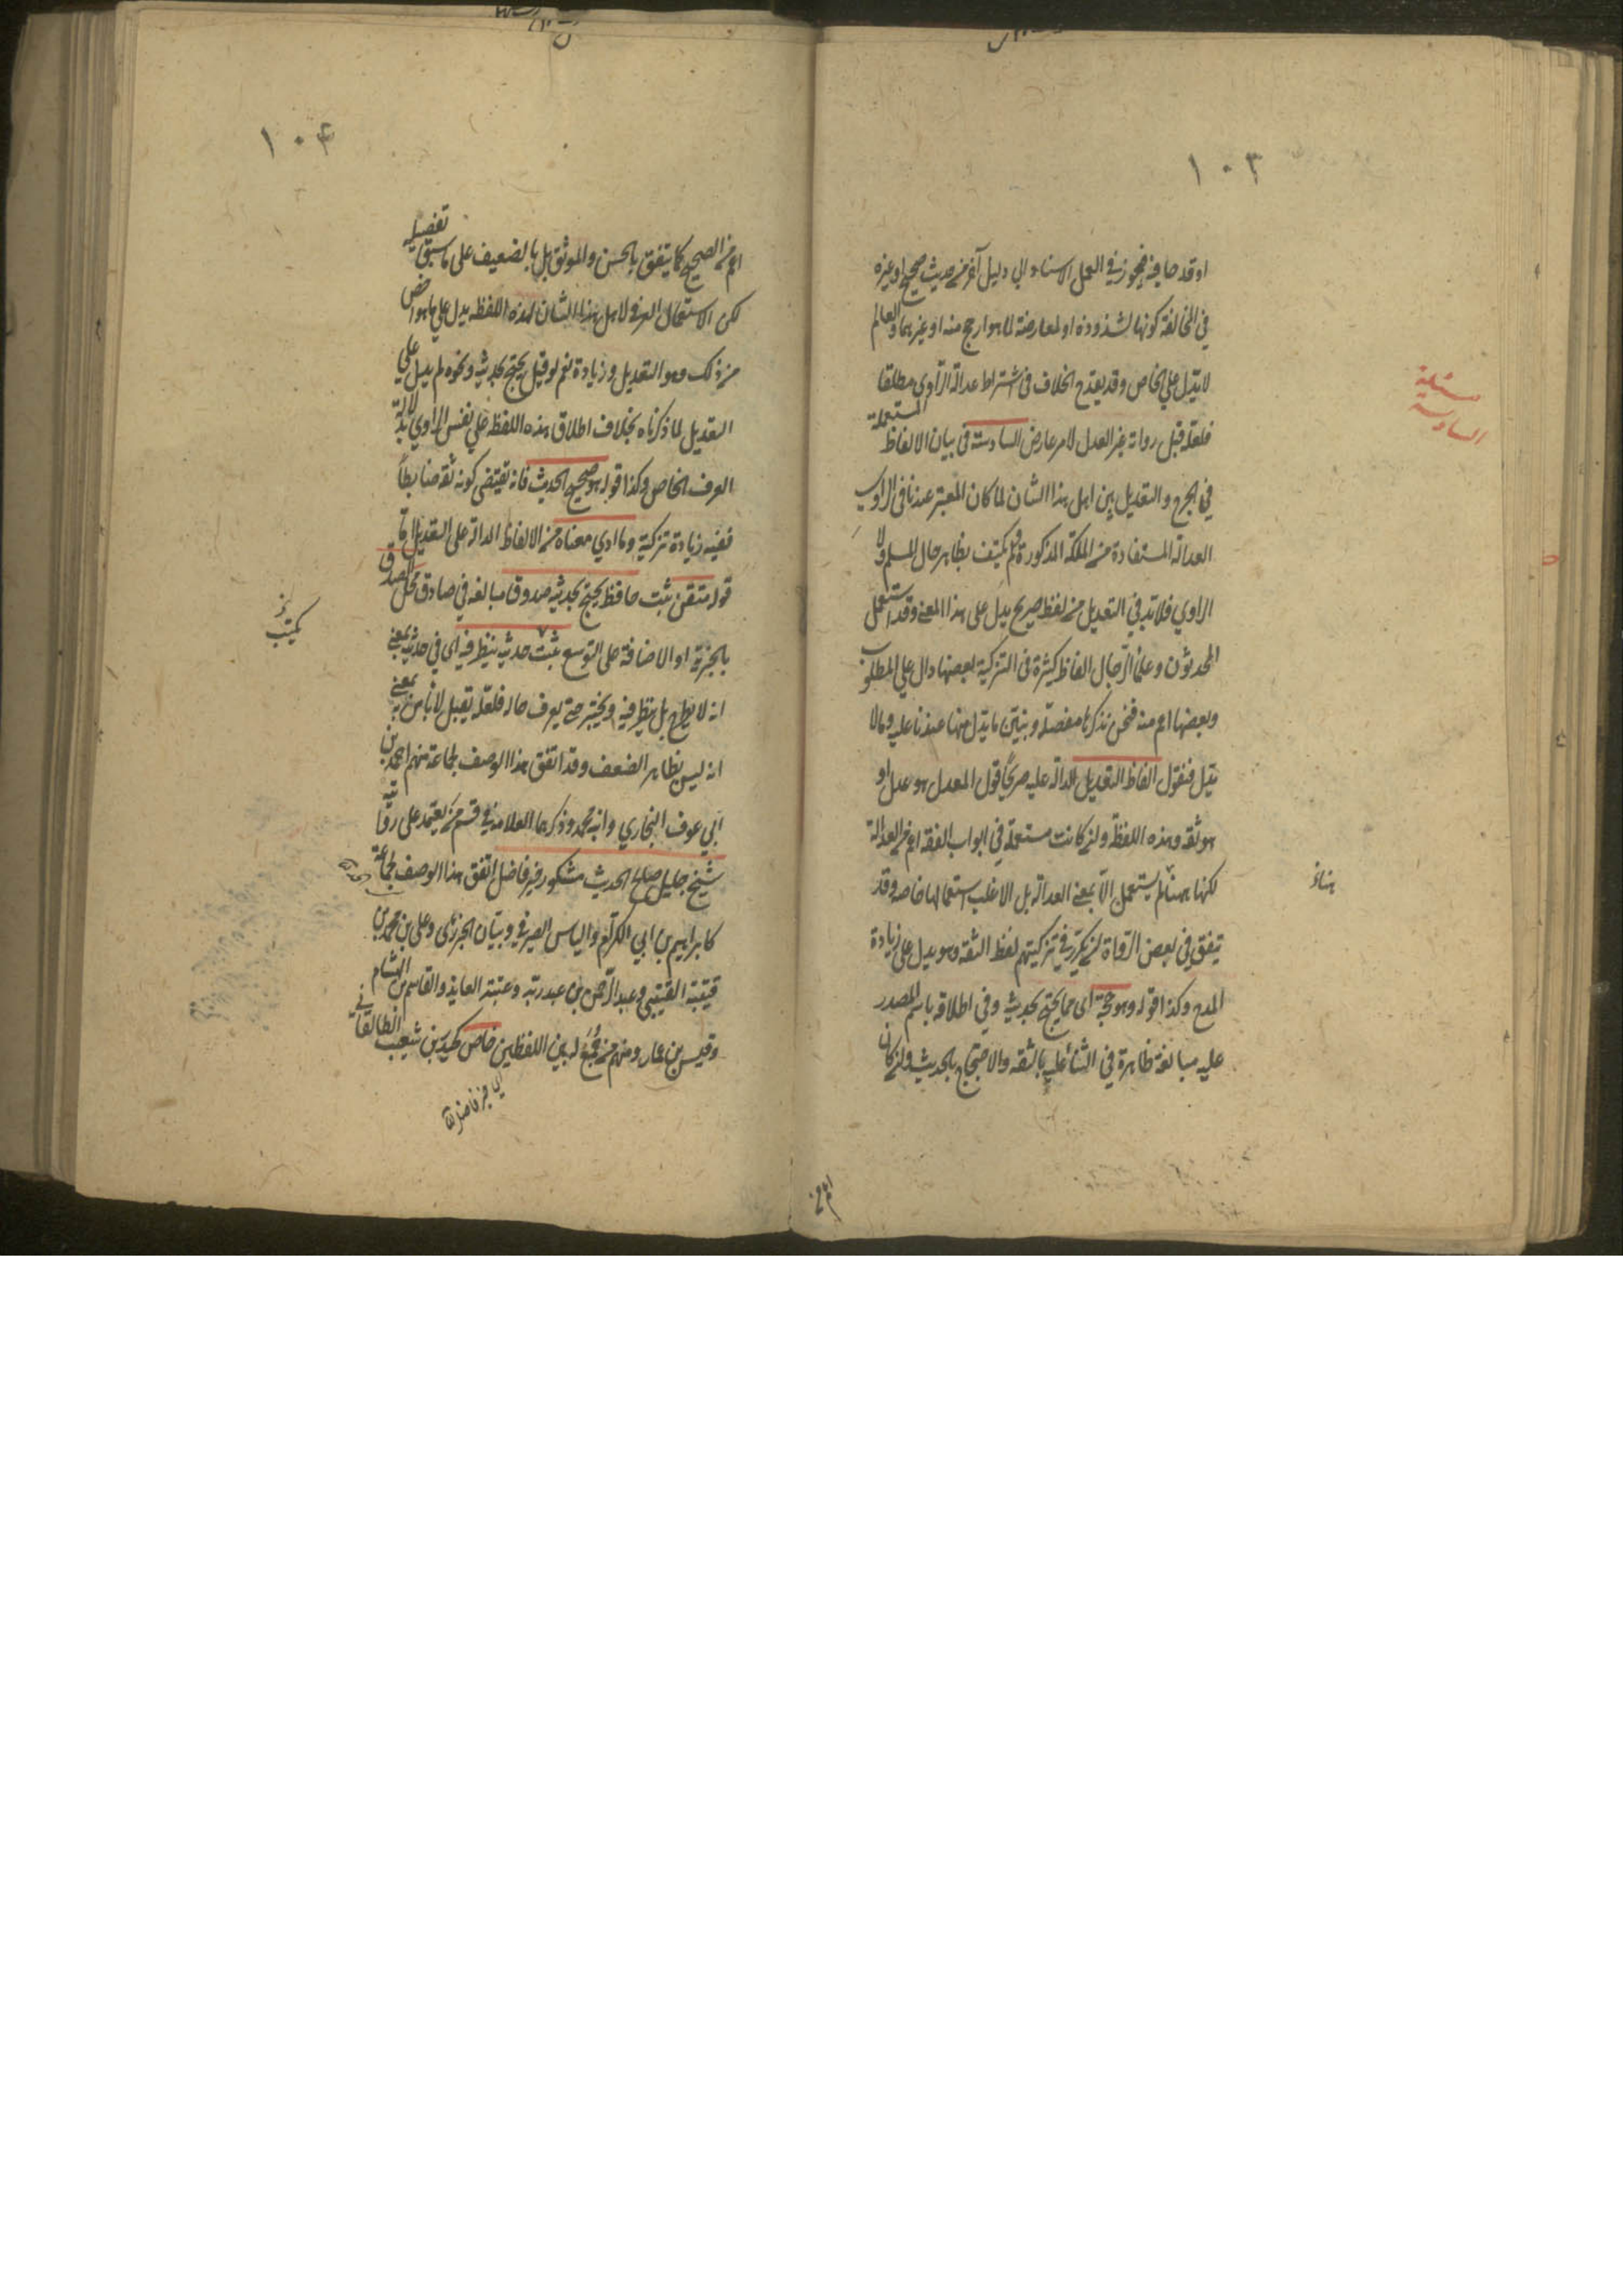 ١٠٣
او قدحا فيه فيجوز في العمل الاستناد الي دليل آخر من حديث صحيح او غيره
في المخالفة كونها لشذوذه او لمعارضة لما هو ارجح منه او غيرهما والعالم
لا يدل على الخاص وقد يقدح الخلاف فى اشتراط عدالة الراوي مطلقا
فلعله قبل رواية غير العدل لامر عارض السادسة فى بيان الالفاظ المستعملة
في الجرح والتعديل بين اهل هذا الشان لما كان المعتبر عندنا فى الراوي
العدالة المستفادة من الملكة المذكورة فلم يكتف بظاهر حال المسلم ولا
الراوي فلا بد في التعديل من لفظ صريح يدل على هذا المعنى وقد استعمل
المحدثون وعلماء الرجال الفاظا كثيرة فى التزكية بعضها دال علي المطلوب
وبعضها اعم منه فنحن نذكرها مفصلة ونبين ما يدل منها عندنا عليه وما لا
يدل فنقول الفاظ التعديل الدالة عليه صريحا قول المعدل هو عدل او
هو ثقه وهذه اللفظة وان كانت مستعملة في ابواب الفقه اعم من العدالة
لكنها هنا لم يستعمل الا بمعنى العدالة بل الاغلب استعمالها خاصه وقد
يتفق فى بعض الرواة ان يكرر في تزكيتهم لفظ الثقه وهو يدل على زيادة
المدح وكذا قوله وهو حجة اى مما يحتج بحديثه وفي اطلاق اسم المصدر
عليه مبالغة ظاهرة في الثناء عليه بالثقه والاحتجاج بالحديث وان كان
مسئلة
السادسة
اعم من
١٠٤
اعم من الصحيح كما يتفق بالحسن والموثق بل بالضعيف على ما سبق تفصيله
لكن الاستعمال العرفي لاهل هذا الشان لهذه اللفظه يدل علي ما هو اخص
من ذلك وهو التعديل وزيادة نعم لو قيل يحتج بحديثه ونحوه لم يدل علي
التعديل لما ذكرناه بخلاف اطلاق هذه اللفظه علي نفس الراوي بدلالة
العرف الخاص وكذا قوله هو صحيح الحديث فانه يقتضى كونه ثقه ضابطا
ففيه زيادة تزكية وما ادي معناه من الالفاظ الدالة على التعديل اما
قوله متقن ثبت حافظ يحتج بحديثه صدوق مبالغه في صادق محل الصدق
بالجزية او الاضافة على التوسع يكتب حديثه ينظر فيه اى فى حديثه بمعنى
انه لا يطرح بل ينظر فيه ويختبر حتى يعرف حاله فلعله يقبل لا باس به بمعنى
انه ليس بظاهر الضعف وقد اتفق هذا الوصف لجماعة منهم احمد بن
ابي عوف البخاري وابنه محمد وذكرهما العلامة في قسم من يعتمد على روايته
شيخ جليل صالح الحديث مشكور خير فاضل اتفق هذا الوصف لجماعة
كابراهيم بن ابي الكرام والياس الصيرفي وبيان الجزري وعلى بن محمد بن
قتيبة القتيبي وعبد الرحمن بن عبد ربه وعتبة العابد والقاسم بن الهشام
وقيس بن عمار ومنهم من جمع له بين اللفظين خاص كحيدر بن شعيب الطالقاني
يكتب